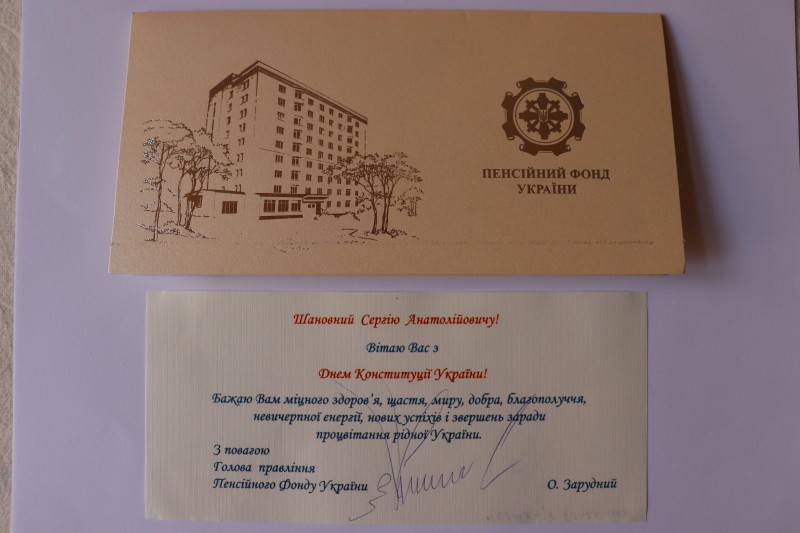 ПЕНСІЙНИЙ ФОНД
УКРАЇНИ
Шановний Сергію Анатолійовичу!
Вітаю Вас з
Днем Конституції України!
Бажаю Вам міцного здоров'я, щастя, миру, добра, благополуччя,
невичерпної енергії, нових успіхів і звершень заради
процвітання рідної України.
З повагою
Голова правління
Пенсійного Фонду України
О. Зарудний